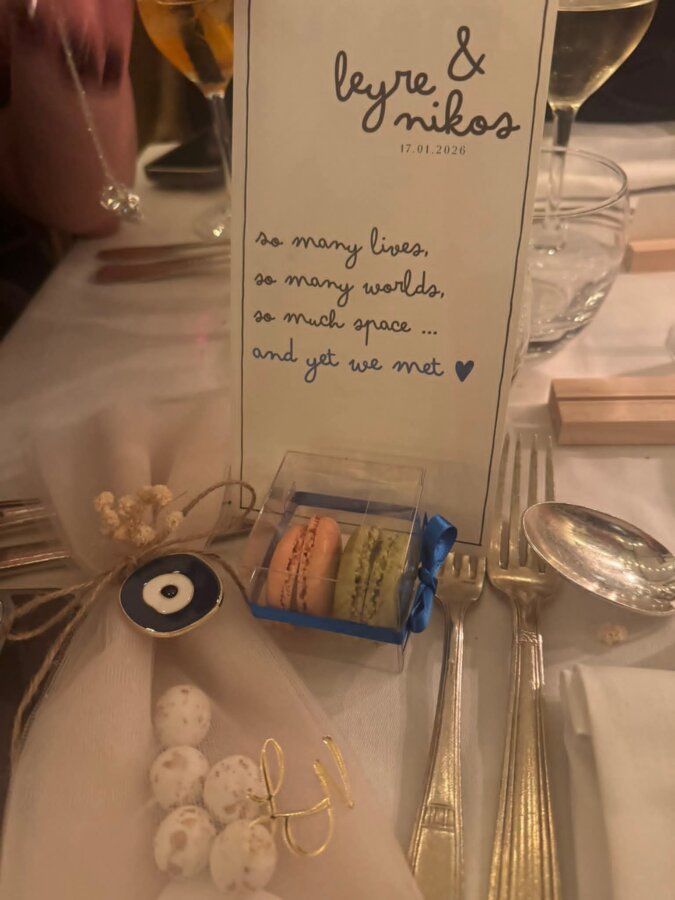 leyre &
nikos
17.01.2026
so many lives,
so many worlds,
so much space ...
and yet we met ♥